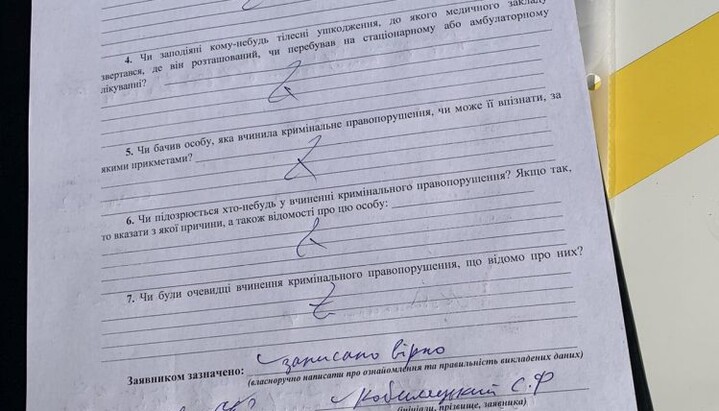 4. Чи заподіяні кому-небудь тілесні ушкодження, до якого медичного закладу
звертався, де він розташований, чи перебував на стаціонарному або амбулаторному
лікуванні?
5. Чи бачив особу, яка вчинила кримінальне правопорушення, чи може її впізнати, за
якими прикметами?
6. Чи підозрюється хто-небудь у вчиненні кримінального правопорушення? Якщо так,
то вказати з якої причини, а також відомості про цю особу:
7. Чи були очевидці вчинення кримінального правопорушення, що відомо про них?
Заявником зазначено: записано вірно
(власноручно написати про ознайомлення та правильність викладених даних)
С.Ф
(ініціали, прізвище, заявника)